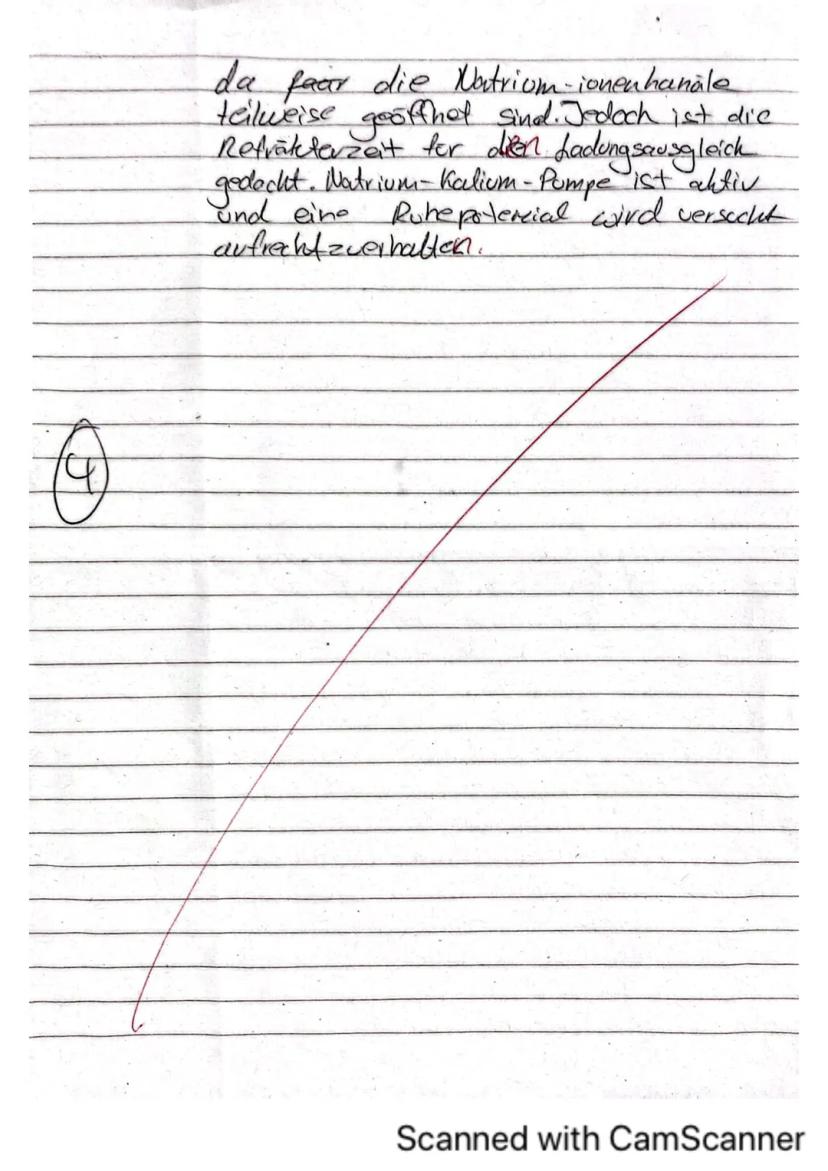 da die Natrium-ionenkanäle
teilweise geöffnet sind. Jedoch ist die
Refräkterzeit for den Ladungsausgleich
gedacht. Natrium-Kalium-Pumpe ist aktiv
und eine Ruhepotenzial wird versucht
aufrechtzuerhalten.
4
Scanned with CamScanner